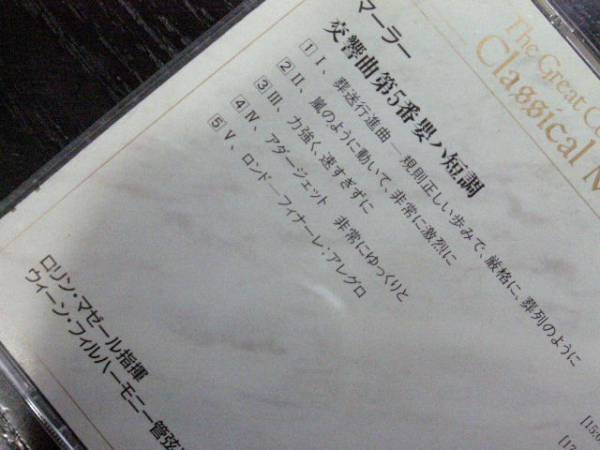 The Great Co
Classical M
マーラー
交響曲第5番嬰ハ短調
1 Ⅰ、葬送行進曲 ― 規則正しい歩みで、厳格に、葬列のように
2 Ⅱ、嵐のように動いて、非常に激烈に
3 Ⅲ、力強く、速すぎずに
4 Ⅳ、アダージェット 非常にゆっくりと
5 Ⅴ、ロンド―フィナーレ・アレグロ
ロリン・マゼール指揮
ウィーン・フィルハーモニー管弦